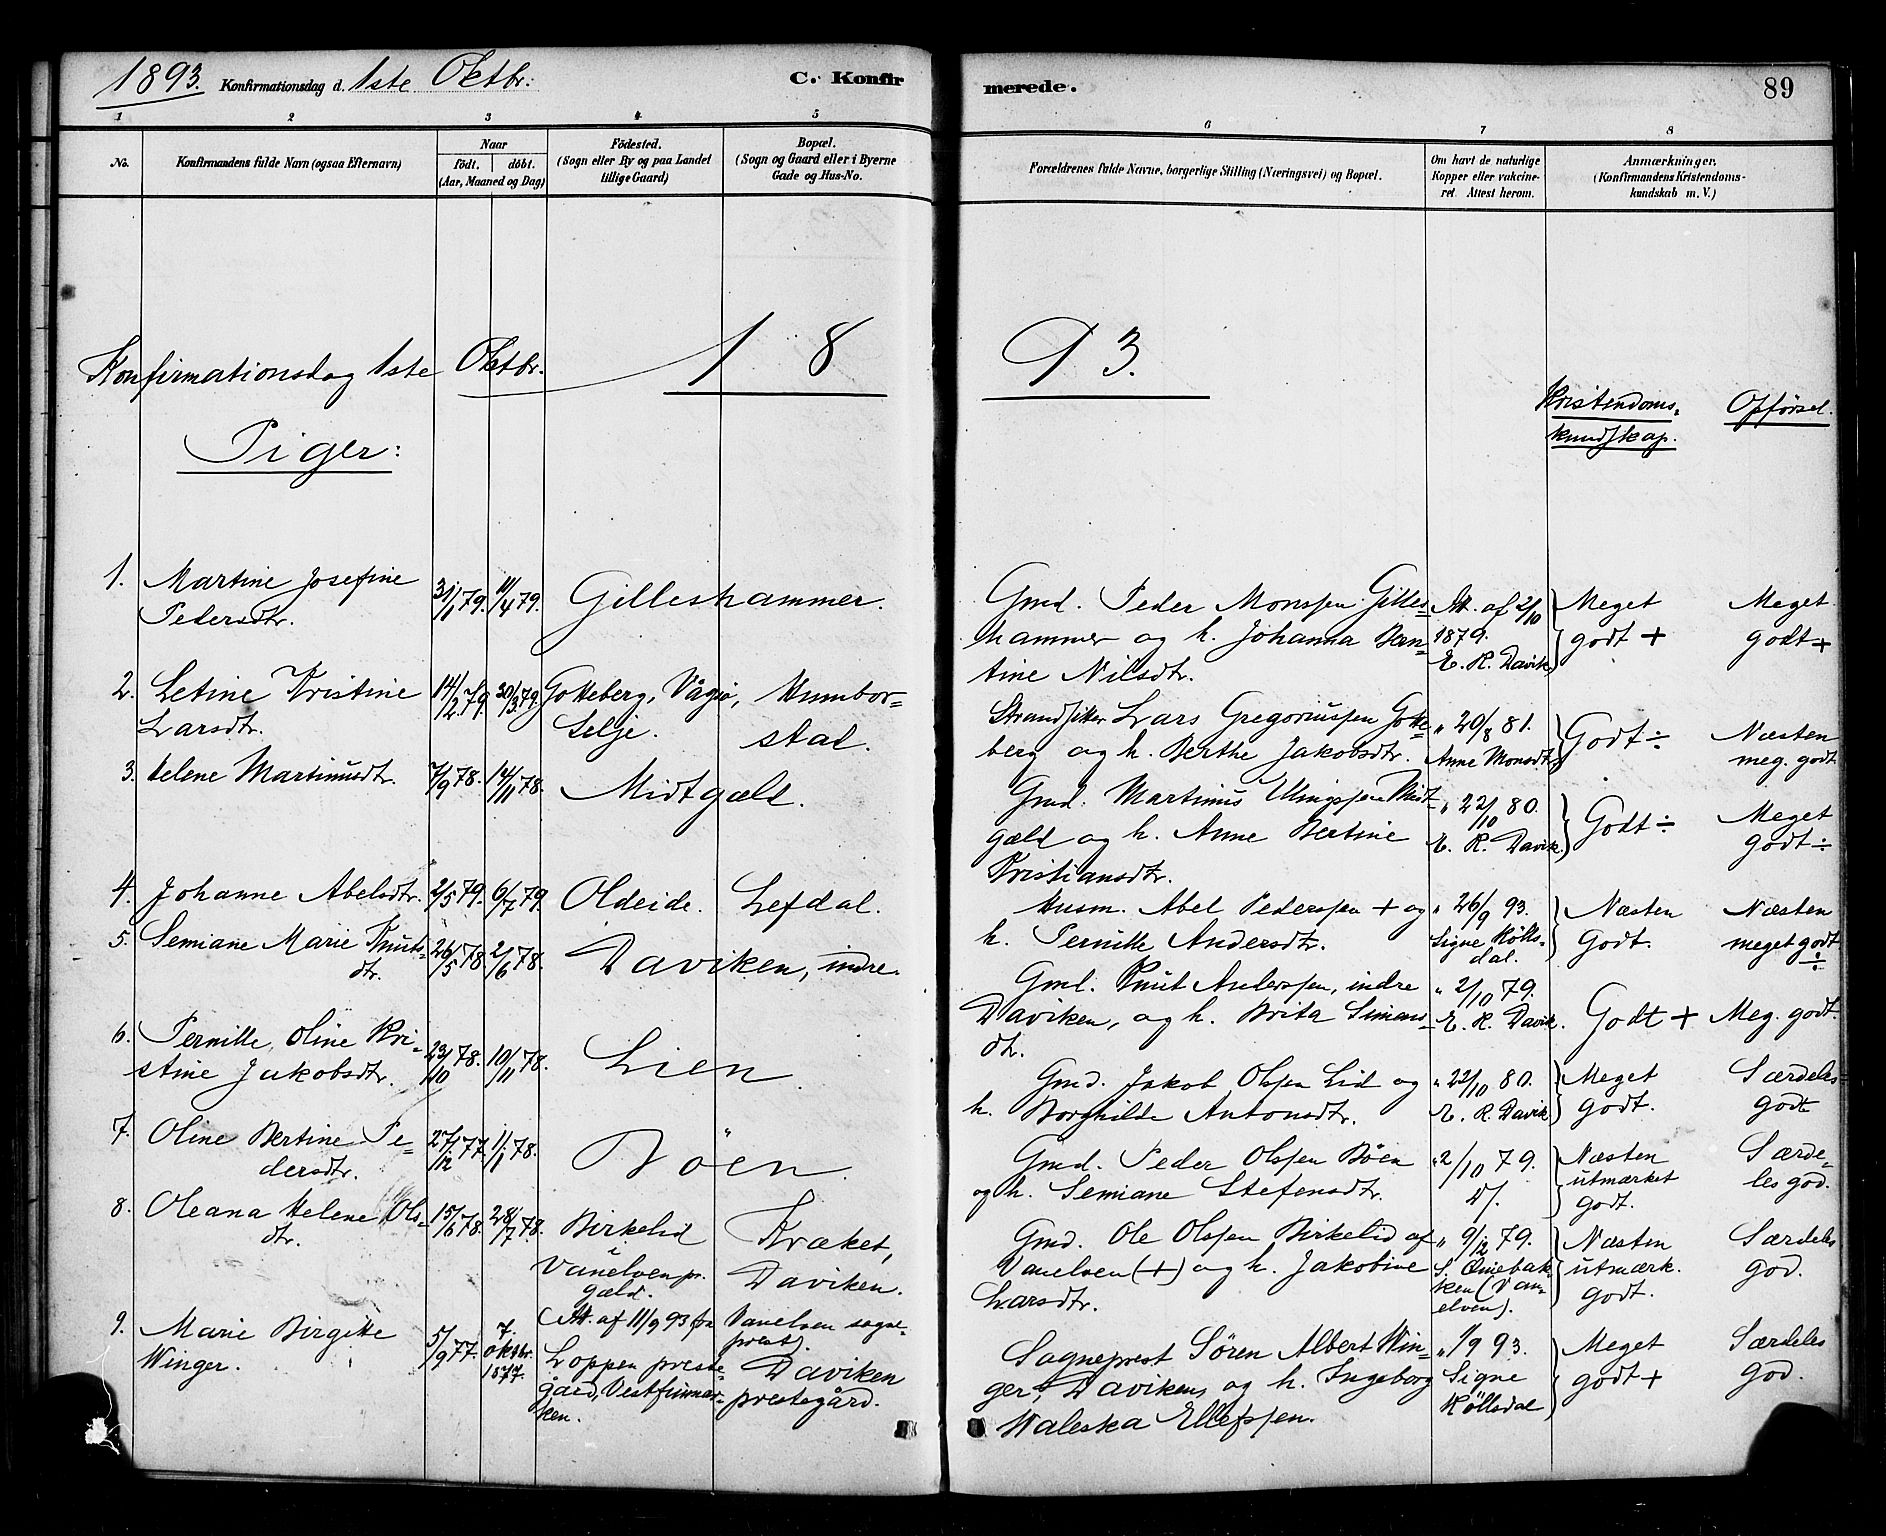 1893. Konfirmationsdag d. 1ste Oktbr: C. Konfirmerede. 89
1 2 3 4 5 6 7 8
No.
Konfirmandens fulde Navn (ogsaa Efternavn)
Naar
födt. döbt.
(Aar, Maaned og Dag)
Födested.
(Sogn eller By og paa Landet
tillige Gaard)
Bopæl.
(Sogn og Gaard eller i Byerne
Gade og Hus-No.
Forældrenes fulde Navne, borgerlige Stilling (Næringsvei) og Bopæl.
Om havt de naturlige
Kopper eller vakcine-
ret. Attest herom.
Anmærkninger.
(Konfirmandens Kristendoms-
kundskab m. V.)
Konfirmationsdag 1ste Oktbr. 1893.
Piger:
Kristendoms-
kundskap.
Opförsel.
1. Martine Josefine
Pedersdtr.
31/1 79. 11/4 79.
Gilleshammer.
Gmd. Peder Monssen Gilles=
hammer og h. Johanna Bern=
tine Nilsdtr.
Att. af 2/10
1879.
E. R. Davik.
Meget
godt +
Meget
godt +
2. Letine Kristine
Larsdtr.
14/2 79. 20/3 79.
Gotteberg, Vågsö,
Selje.
Humbor-
stad.
Strandsitter Lars Gregoriussen Gotte=
berg og h. Berthe Jakobsdtr.
" 20/8 81.
Anne Monsdtr.
Godt ÷
Næsten
meg. godt
3. Helene Martinusdtr.
7/9 78. 14/11 78.
Midtgæld.
Gmd. Martinus Ellingssen Midt-
gæld og h. Anne Bertine
Kristiansdtr.
" 22/10 80.
E. R. Davik.
Godt ÷
Meget
godt ÷
4. Johanne Abelsdtr.
2/5 79. 6/7 79.
Oldeide.
Lefdal.
Husm. Abel Pederssen + og
h. Pernille Andersdtr.
" 26/9 93.
Signe Hölls-
dal.
Næsten
Godt.
Næsten
meget godt
÷
5. Semiane Marie Knuts-
dtr.
26/5 78. 2/6 78.
Daviken, indre
Gmd. Knut Anderssen, indre
Daviken, og h. Brita Simons-
dtr.
" 2/10 79.
E. R. Davik.
Godt +
Meg. godt.
6. Pernille Oline Kri-
stine Jakobsdtr.
23/10 78. 10/11 78.
Lien.
Gmd. Jakob Olssen Lid og
h. Borghilde Antonsdtr.
" 22/10 80.
E. R. Davik
Meget
godt.
Særdeles
godt
7. Oline Bertine Pe-
dersdtr.
27/12 77. 1/1 78.
Böen.
Gmd. Peder Olssen Böen
og h. Semiane Stefensdtr.
" 2/10 79.
Næsten
utmærket
godt.
Særde-
les god.
8. Oleana Helene Ols-
dtr.
15/6 78. 28/7 78.
Birkelid
i
Vanelven pr.
gæld.
Kræket,
Daviken.
Gmd. Ole Olssen Birkelid af
Vanelven (+) og h. Jakobine
Larsdtr.
" 9/12 79.
(Van-
elven).
Næsten
utmærk.
godt.
Særdeles
god.
9. Marie Birgitte
Winger.
5/9 77. 7.
oktbr.
1877.
(Att. af 11/9 93 fra
Vanelven sogne-
prest).
Loppen preste-
gård, Vestfinmar-
ken.
Daviken
prestegård.
Sogneprest Sören Albert Win-
ger, Daviken, og h. Ingeborg
Waleska Ellefssen.
" 1/9 93.
Signe
Höllsdal
Meget
godt +
Særdeles
god.